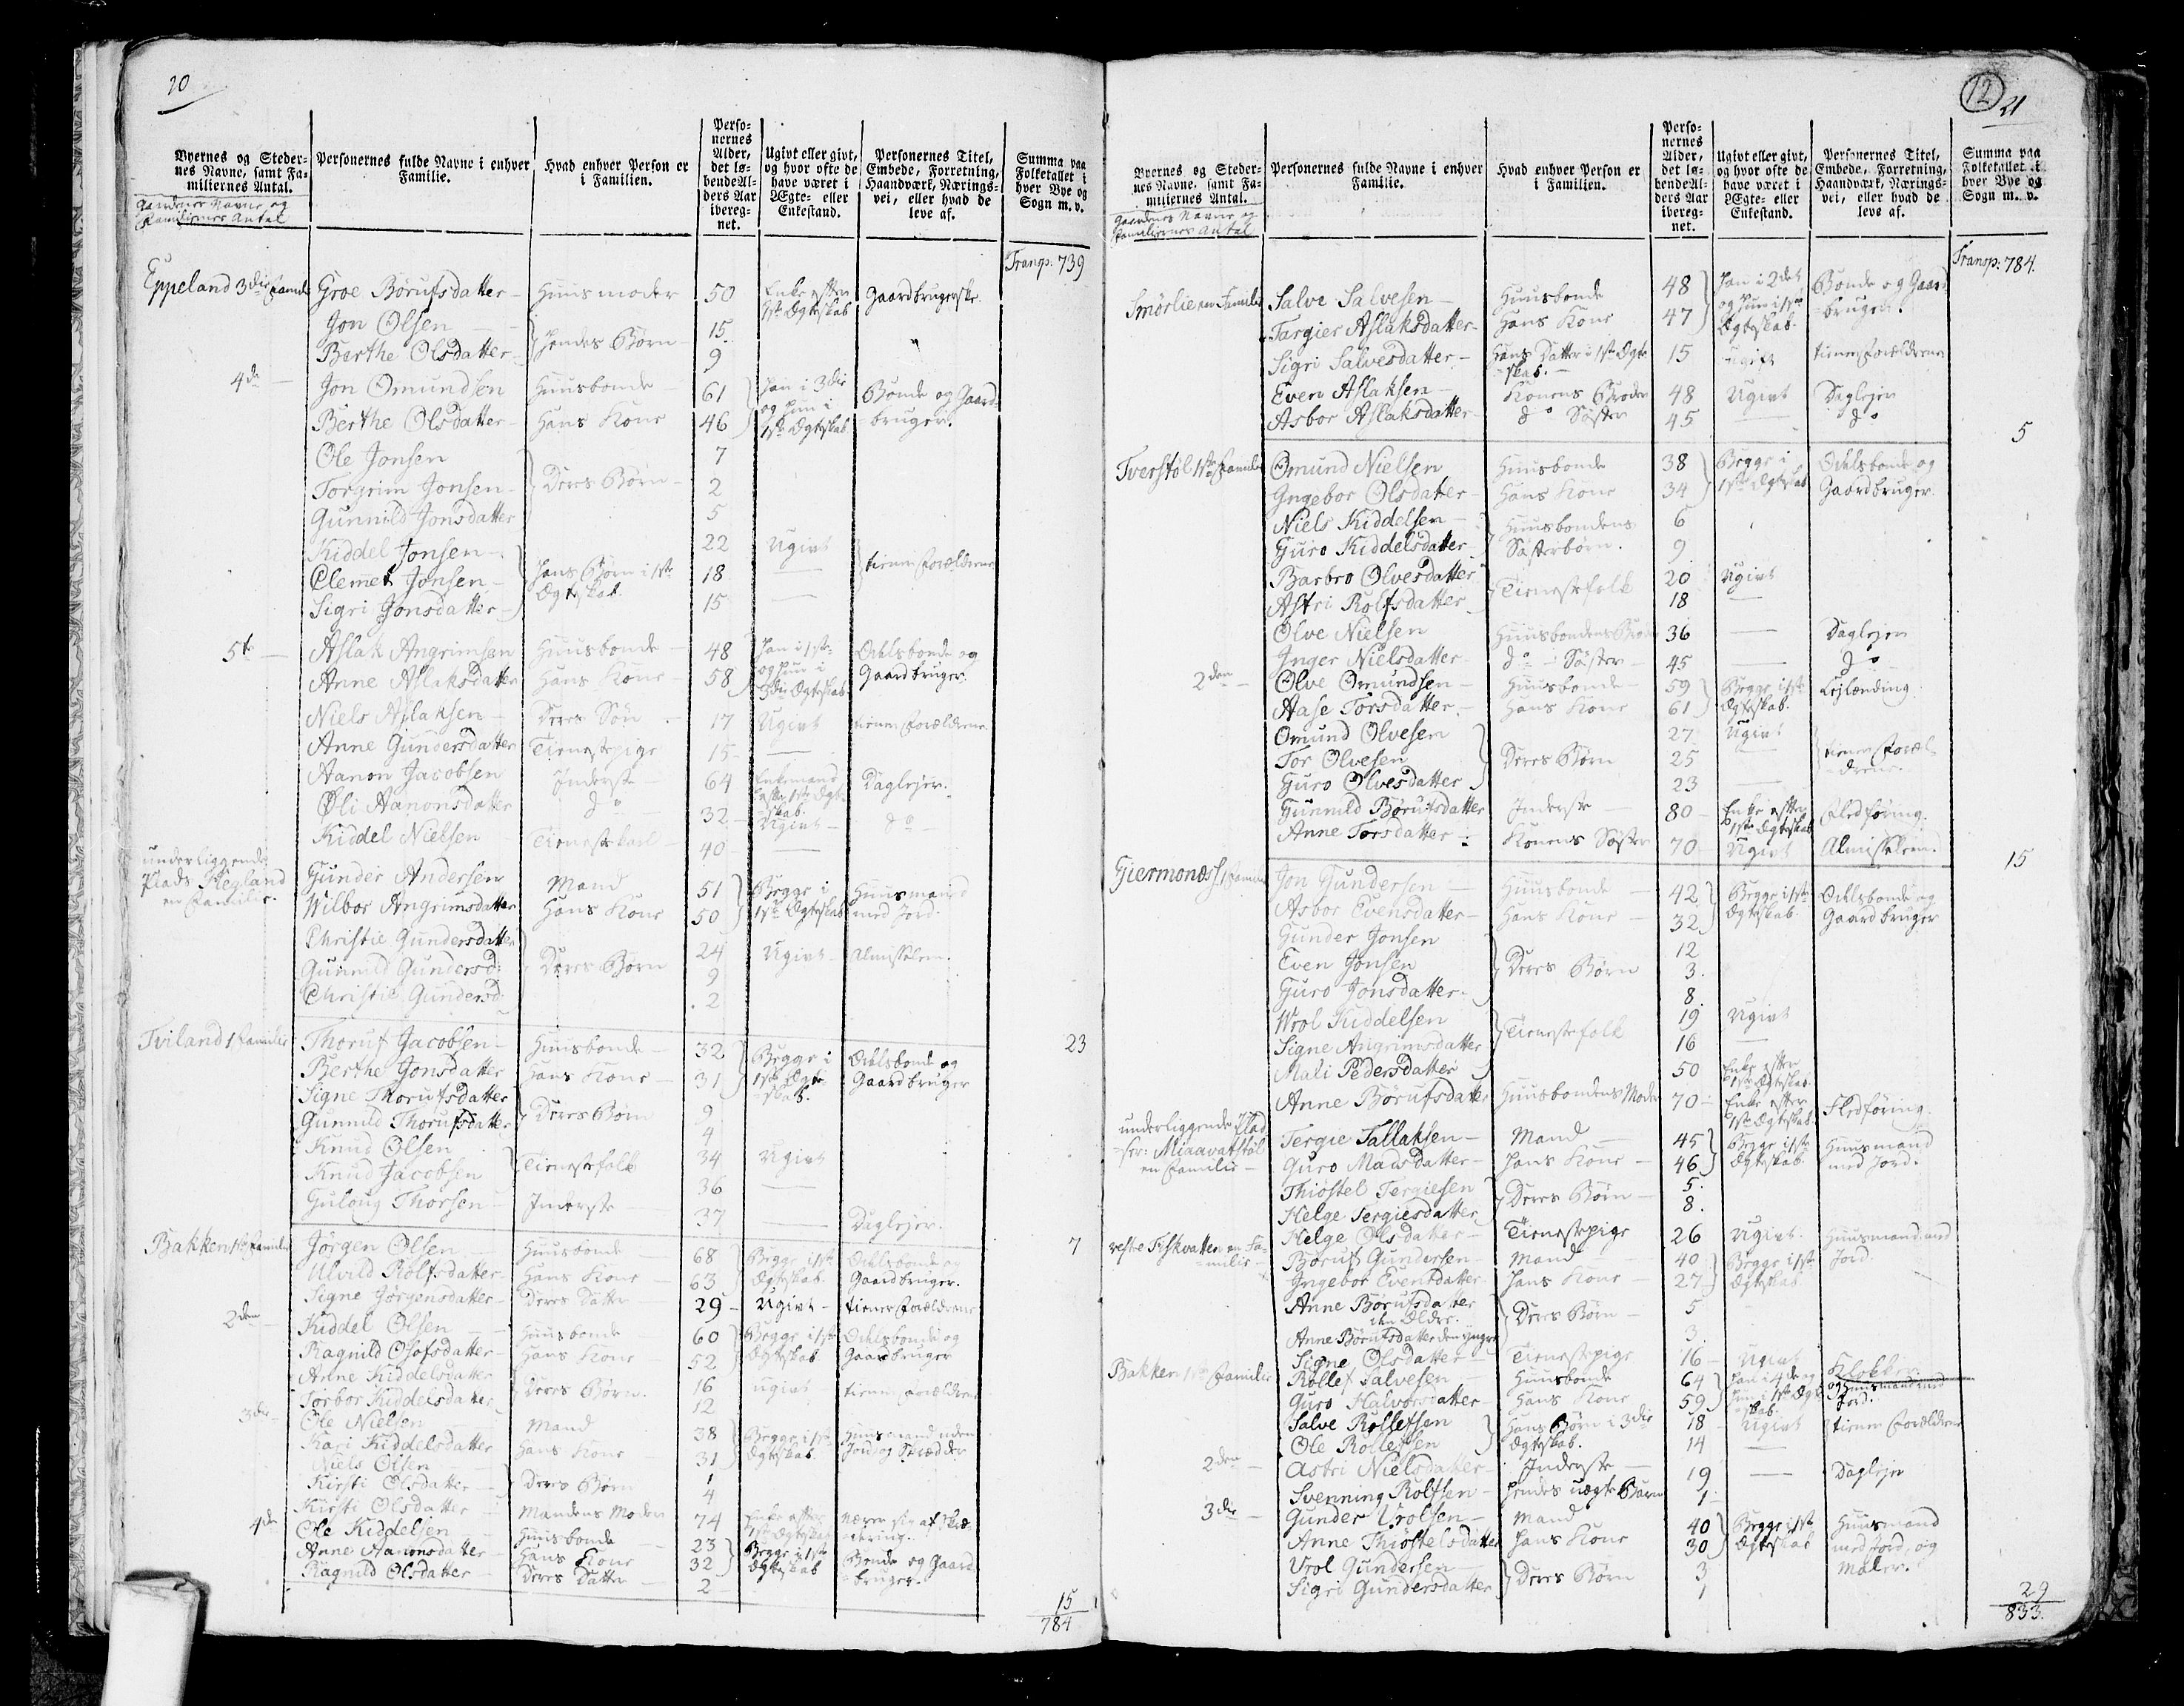 20
Byernes og Steder-nes Navne, samt Fa-miliernes Antal.
Gaardenes Navne og Familiernes Antal
Personernes fulde Navne i enhver Familie.
Hvad enhver Person er i Familien.
Perso-nernes Alder, det lø-bende Al-ders Aar ibereg-net.
Ugivt eller givt, og hvor ofte de have været i Ægte- eller Enkestand.
Personernes Titel, Embede, Forretning, Haandværk, Nærings-vei, eller hvad de leve af.
Summa paa Folketallet i hver Bye og Sogn m. v.
Transp: 739
Eppeland 3die Famile Groe Børufsdatter Huusmoder 50 Enke efter 1ste Ægteskab Gaardbrugerske
Jon Olsen Hendes Børn 15
Berthe Olsdatter 9
4de Jon Omundsen Huusbonde 61 Han i 3die og hun i 1ste Ægteskab Bonde og Gaardbruger.
Berthe Olsdatter Hans Kone 46
Ole Jonsen Deres Børn 7
Torgrim Jonsen 2
Gunnild Jonsdatter 5
Kiddel Jonsen Hans Børn i 1ste Ægteskab 22 Ugivt tiener Forældrene
Clemet Jonsen 18
Sigri Jonsdatter 15
5te Aslak Angrimsen Huusbonde 48 Han i 1ste og hun i 3die Ægteskab Odelsbonde og Gaardbruger.
Anne Aslaksdatter Hans Kone 58
Niels Aslaksen Deres Søn 17 Ugivt tiener Forældrene
Anne Gundersdatter Tienestepige 15
Aanon Jacobsen Inderste 64 Enkemand efter 1ste Ægteskab Daglejer.
Øli Aanonsdatter do 32 Ugivt do
Kiddel Nielsen Tienestekarl 40
underliggende Plads Hegland en Familie. Gunder Andersen Mand 51 Begge i 1ste Ægteskab Huusmand med Jord.
Wilbor Angrimsdatter Hans Kone 50
Christie Gundersdatter Deres Børn 24 Ugivt Almisselem.
Gunnild Gundersd: 9
Christie Gundersd: 2
23
Tviland 1 Familie Thoruf Jacobsen Huusbonde 32 Begge i 1ste Ægteskab. Odelsbonde og Gaardbruger
Berthe Jonsdatter Hans Kone 31
Signe Thorufsdatter Deres Børn 9
Gunnild Thorufsdatter 4
Knud Olsen Tienestefolk 34 Ugivt
Knud Jacobsen 36
Guloug Thorsen Inderste 37 Daglejer.
7
Bakken 1ste Familie Jørgen Olsen Huusbonde 68 Begge i 1ste Ægteskab Odelsbonde og Gaardbruger.
Ulvild Rolfsdatter Hans Kone 63
Signe Jørgensdatter Deres Datter 29 Ugivt tiener Forældrene
2den Kiddel Olsen Huusbonde 60 Begge i 1ste Ægteskab Odelsbonde og Gaardbruger
Ragnild Olofsdatter Hans Kone 52
Anne Kiddelsdatter Deres Børn. 16 ugivt tiener Forældrene
Torbor Kiddelsdatter 12
3die Ole Nielsen Mand 38 Begge i 1ste Ægteskab Huusmand uden Jord og Skrædder
Kari Kiddelsdatter Hans Kone 31
Niels Olsen Deres Børn 1
Kirsti Olsdatter 4
Kirsti Olsdatter Mandens Moder 74 Enke efter 1ste Ægteskab
4de Ole Kiddelsen Huusbonde 23 Begge i 1ste Ægteskab Bonde og Gaardbruger.
Anne Aanonsdatter Hans Kone 32
Ragnild Olsdatter Deres Datter 2
15
784
12
21
Byernes og Steder-nes Navne, samt Fa-miliernes Antal.
Gaardenes Navne og Familiernes Antal
Personernes fulde Navne i enhver Familie.
Hvad enhver Person er i Familien.
Perso-nernes Alder, det lø-bende Al-ders Aar ibereg-net.
Ugivt eller givt, og hvor ofte de have været i Ægte- eller Enkestand.
Personernes Titel, Embede, Forretning, Haandværk, Nærings-vei, eller hvad de leve af.
Summa paa Folketallet i hver Bye og Sogn m. v.
Transp: 784.
Smørlie en Familie Salve Salvesen Huusbonde 48 Han i 2det og Hun i 1ste Ægteskab. Bonde og Gaardbruger.
Targier Aslaksdatter Hans Kone 47
Sigri Salvesdatter Hans Datter i 1ste Ægteskab. 15 ugift tiener Forældrene
Even Aslaksen Konens Broder 48 Ugivt Daglejer
Asbor Aslaksdatter do Søster 45 do
5
Tverstøl 1ste Familie Omund Nielsen Huusbonde 38 Begge i 1ste Ægteskab Odelsbonde og Gaardbruger.
Ingebor Olsdatter Hans Kone 34
Niels Kiddelsen Huusbondens Søsterbørn. 6
Guro Kiddelsdatter 9
Barbro Olvesdatter Tienestefolk 20 Ugivt
Astri Rolfsdatter 18
Olve Nielsen Huusbondens Broder 36 Daglejer
Inger Nielsdatter do Søster 45 do
2den Olve Omundsen Huusbonde 59 Begge i 1ste Ægteskab. Lejlænding
Aase Torsdatter Hans Kone 61
Omund Olvesen Deres Børn 27 Ugivt tiener Forældrene.
Tor Olvesen 25
Guro Olvesdatter 23
Gunnild Børufsdatter Inderste 80 Enke efter 1ste Ægteskab Fledføring.
Anne Torsdatter Konens Søster 70 Ugivt Almisselem.
15
Giermonæs 1 Familie Jon Gundersen Huusbonde 42 Begge i 1ste Ægteskab. Odelsbonde og Gaardbruger
Asbor Evensdatter Hans Kone 32
Gunder Jonsen Deres Børn 12
Even Jonsen 3
Guro Jonsdatter 8
Wrol Kiddelsen Tienestefolk 19 Ugivt
Signe Angrimsdatter 16
Mali Pedersdatter 50 Enke efter 1ste Ægteskab
Anne Børufsdatter Huusbondens Moder 70 Enke efter 1ste Ægteskab. Fledføring.
underliggende Pladser: Miaavatstøl en Familie Tergie Tallaksen Mand 45 Begge i 1ste Ægteskab. Huusmand med Jord.
Guro Madsdatter Hans Kone 46
Thiostel Tergiesen Deres Børn 5
Helge Tergiesdatter 8
Helge Olsdatter Tienestepige 26 Ugivt.
Fiskvatten en Familie Børuf Gundersen Mand 40 Begge i 1ste Ægteskab Huusmand med Jord.
Ingebor Eventdatter Hans Kone 27
Anne Børufsdatter den Ælder. Deres Børn 5
Anne Børufsdatter den yngre 3
Signe Olsdatter Tienestepige 16 Ugivt
Bakken 1ste Familie Rollef Salvesen Huusbonde 64 Han i 4de og hun i 1ste Ægteskab Klokker og Huusmand med Jord.
Guro Halvorsdatter Hans Kone 59
Salve Rollefsen Hans Børn i 3die Ægteskab. 18 Ugivt tiener Forældrene
Ole Rollefsen 14
2den Astri Nielsdatter Inderste 19 Daglejer
Svenning Rolfsen Hendes uægte Barn 1
3die Gunder Vrolsen Mand 40 Begge i 1ste Ægteskab Huusmand med Jord, og Maler.
Anne Thiøstelsdatter Hans Kone 30
Vrol Gundersen Deres Børn 3
Sigri Gundersdatter 1
29
833.